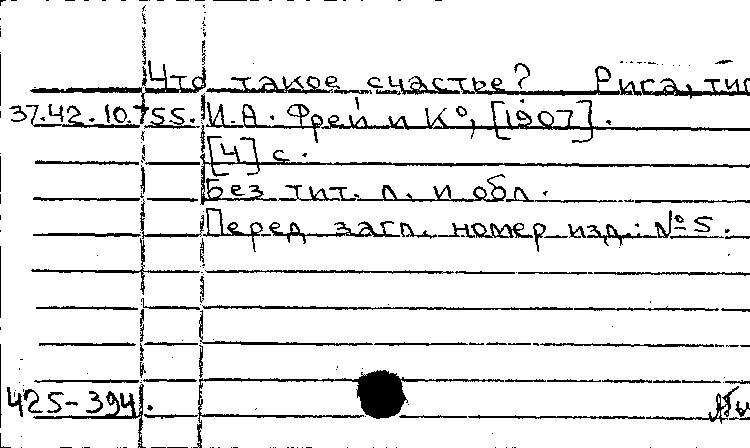 Что такое счастье? Рига, тип
37.42.10.755. И.А. Фрей и К⁰, [1907].
[4] с.
Без тит. л. и обл.
Перед загл. номер изд.: №5.
425-394.